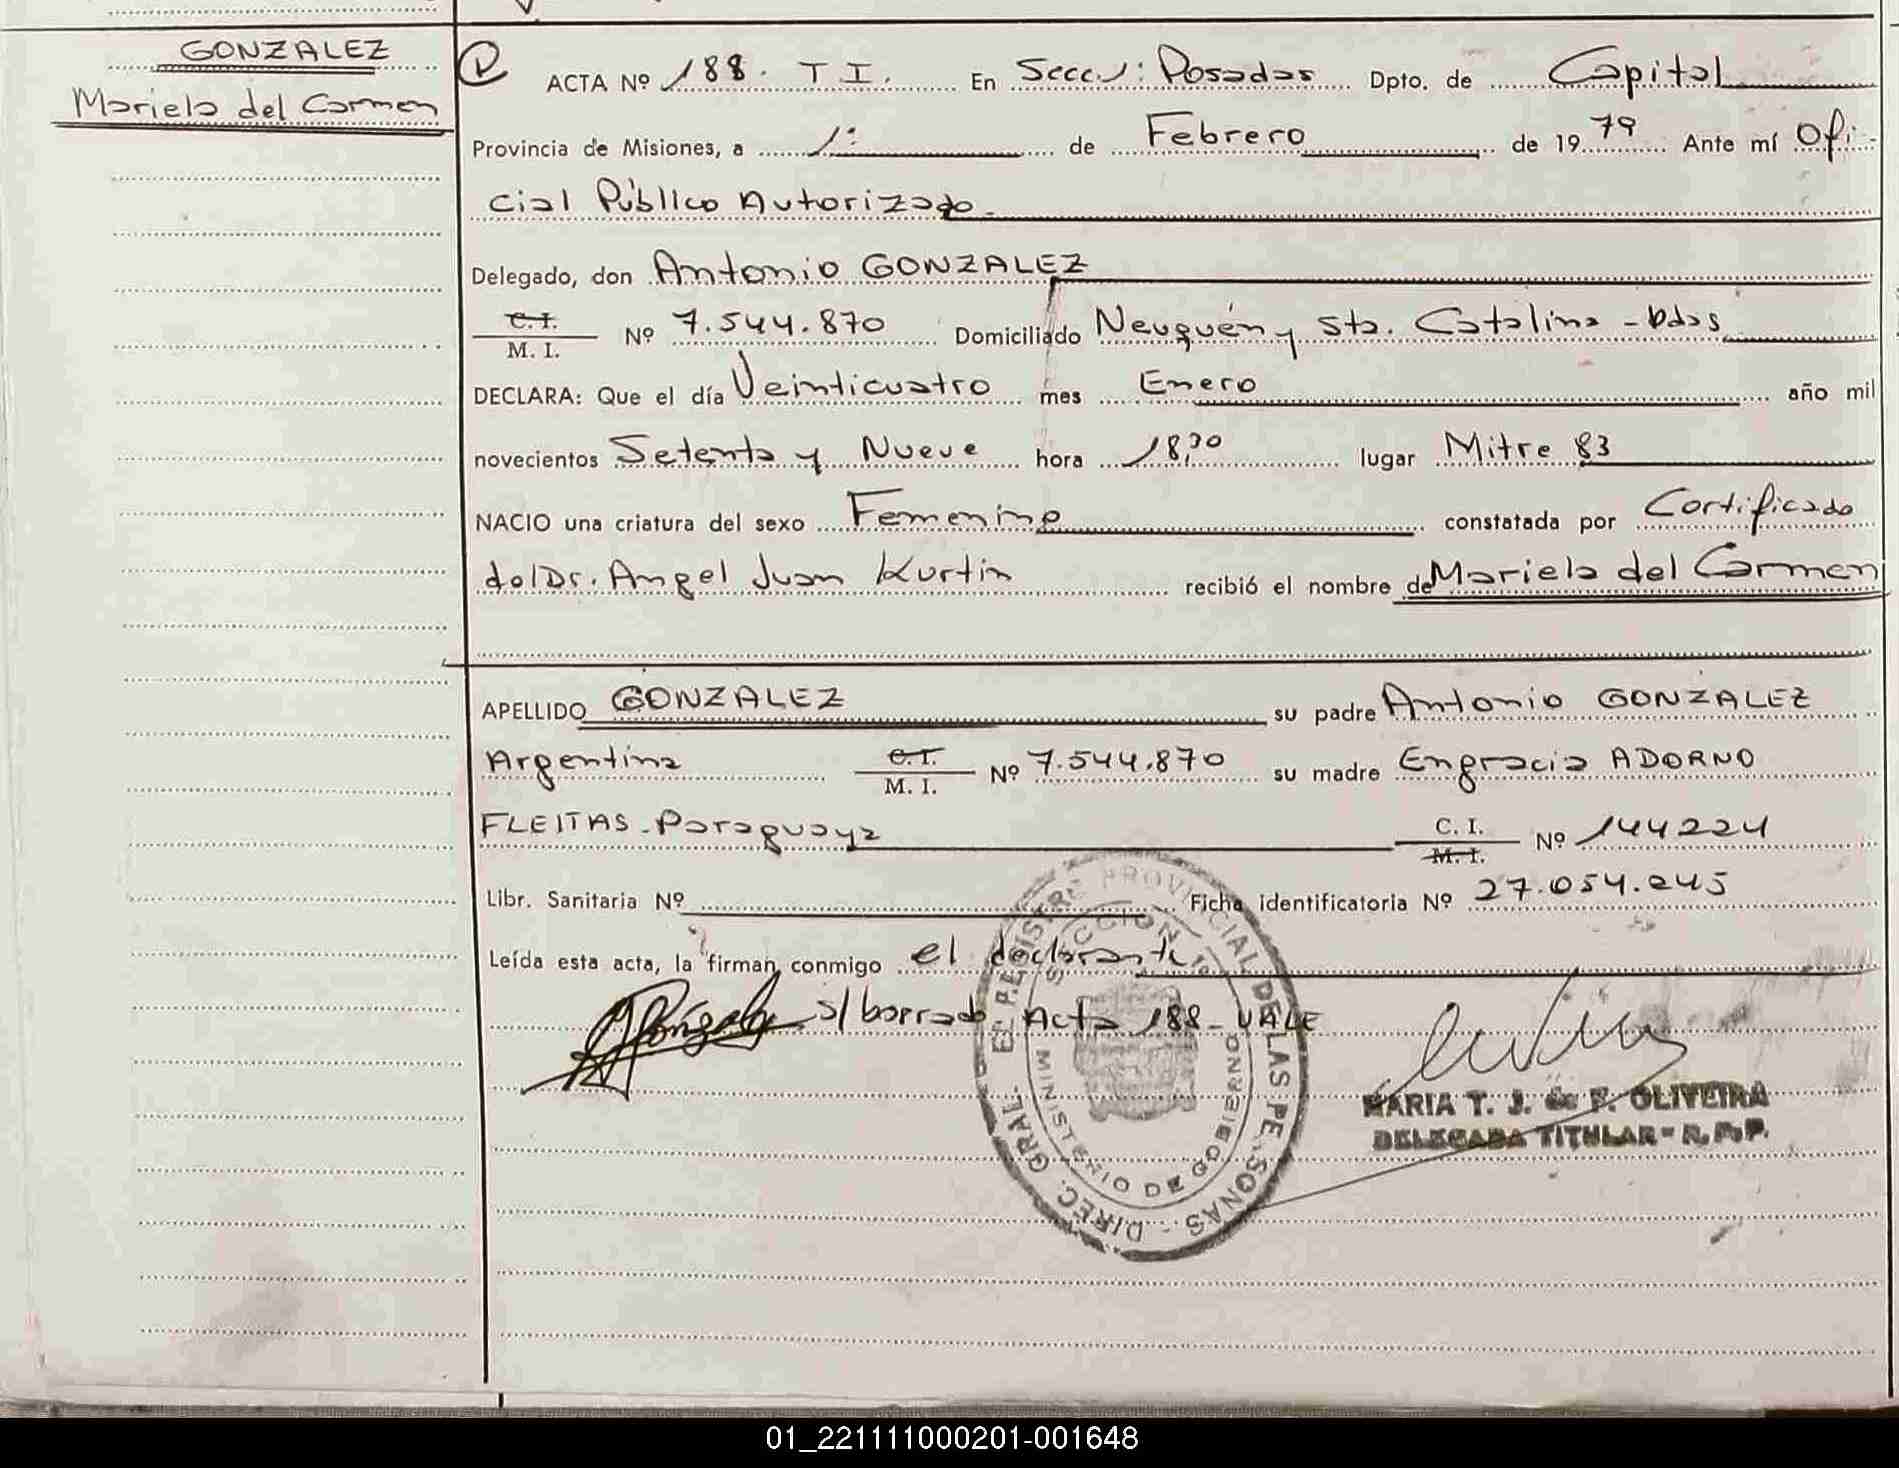 GONZALEZ
Mariela del Carmen
ACTA Nº 188. T I. En Secc. 1: Posadas Dpto. de Capital
Provincia de Misiones, a 1: de Febrero de 1979 Ante mí Ofi-
cial Público Autorizado.
Delegado, don Antonio GONZALEZ
C. I.
M. I. Nº 7.544.870 Domiciliado Neuquén y Sta. Catalina - Pdas
DECLARA: Que el día Veinticuatro mes Enero año mil
novecientos Setenta y Nueve hora 18,30 lugar Mitre 83
NACIO una criatura del sexo Femenino constatada por Certificado
del Dr. Angel Juan Kurtin recibió el nombre de Mariela del Carmen
APELLIDO GONZALEZ su padre Antonio GONZALEZ
Argentina C. I. M. I. Nº 7.544.870 su madre Engracia ADORNO
FLEITAS - Paraguaya C. I. M. I. Nº 144224
Libr. Sanitaria Nº Ficha identificatoria Nº 27.054.245
Leída esta acta, la firman conmigo el declarante
s/ borrado - Acta 188 - VALE
DIREC. GRAL. DEL REGISTRO PROVINCIAL DE LAS PERSONAS -
SECCION 1º
MINISTERIO DE GOBIERNO
MARIA T. J. de F. OLIVEIRA
DELEGADA TITULAR - R. P. P.
01_221111000201-001648